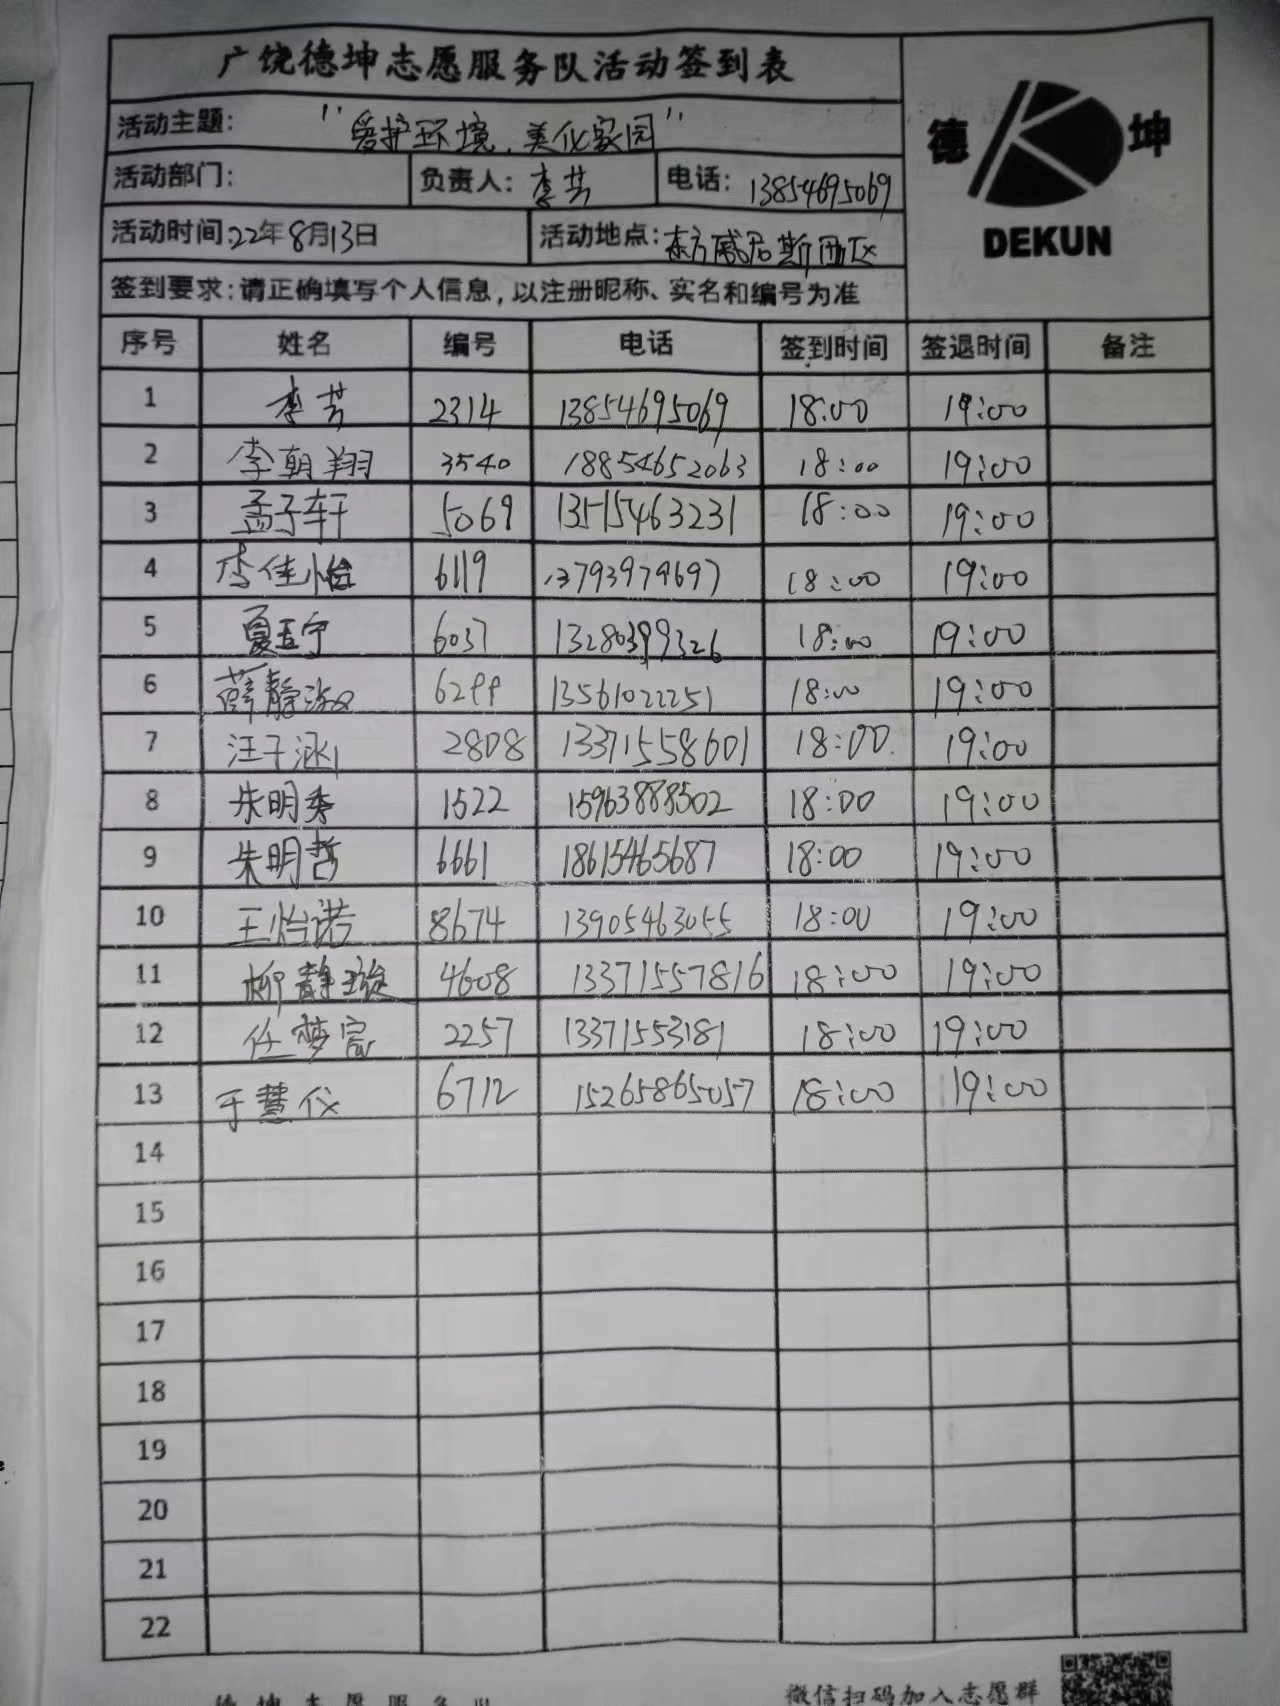 广饶德坤志愿服务队活动签到表
德 坤
DEKUN
活动主题: "爱护环境,美化家园"
活动部门: 负责人: 李芳 电话: 13854695069
活动时间: 22年8月13日 活动地点: 东方威尼斯西区
签到要求:请正确填写个人信息,以注册昵称、实名和编号为准
序号 姓名 编号 电话 签到时间 签退时间 备注
1 李芳 2314 13854695069 18:00 19:00
2 李朝翔 3540 18854652063 18:00 19:00
3 孟子轩 5069 13515463231 18:00 19:00
4 李佳怡 6119 13793979697 18:00 19:00
5 夏玉宁 6037 13280399326 18:00 19:00
6 薛静 6299 13561022251 18:00 19:00
7 汪子涵 2808 13371558601 18:00 19:00
8 朱明 1522 15963888502 18:00 19:00
9 朱明哲 6661 18615465687 18:00 19:00
10 王怡诺 8674 13905463055 18:00 19:00
11 柳静璇 4608 13371557816 18:00 19:00
12 任梦 2257 13371553181 18:00 19:00
13 于慧仪 6712 15265865057 18:00 19:00
14
15
16
17
18
19
20
21
22
德坤志愿服务队
微信扫码加入志愿群